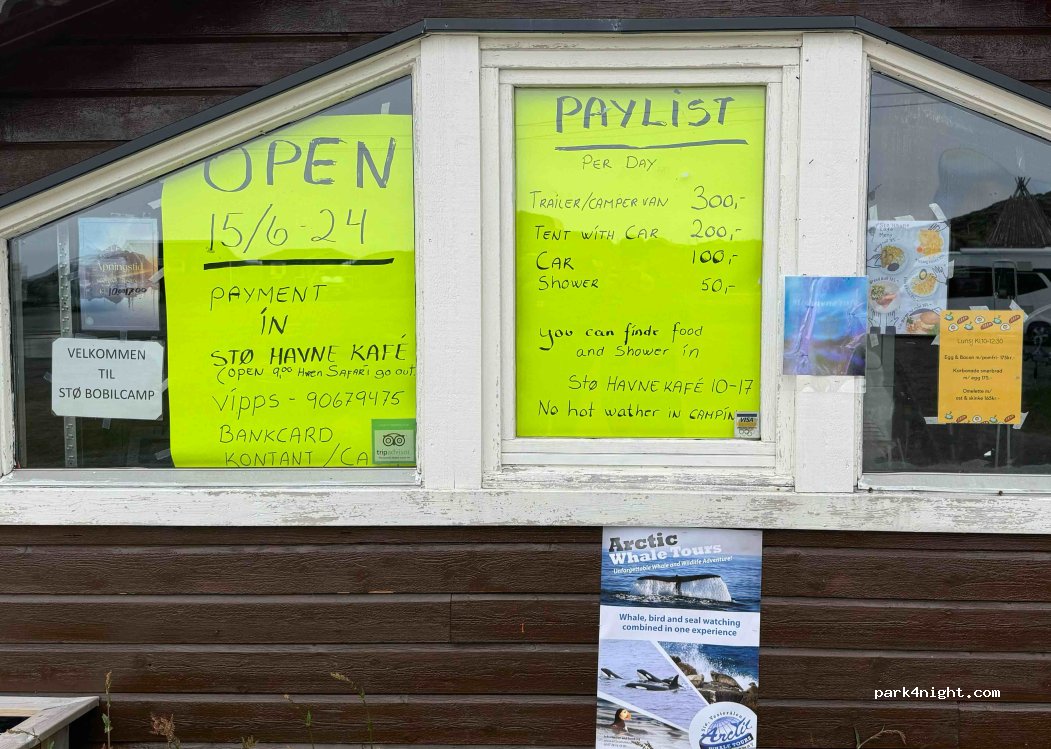 OPEN
15/6-24
PAYMENT
ÍN
STØ HAVNE KAFÉ
(OPEN 9⁰⁰ Hwen SAFARI go out
Vipps - 90679475
BANKCARD
KONTANT /CA
VELKOMMEN
TIL
STØ BOBILCAMP
Åpningstid
tripadvisor
PAYLiST
PER DAY
TRAILER/CAMPER VAN 300,-
TENT WITH CAR 200,-
CAR 100,-
SHOWER 50,-
you can finde food
and Shower in
STØ HAVNEKAFÉ 10-17
No hot wather IN CAMPIN
VISA
Menu
Lunsj Kl.10-12:30
Egg & Bacon m/pomfri- 175kr.
Karbonade smørbrød
m/ egg 175.-
Omelette m/
ost & skinke 165kr.-
Arctic
Whale Tours
Unforgettable Whale and Wildlife Adventure!
Whale, bird and seal watching
combined in one experience
Arctic
WHALE TOURS
park4night.com